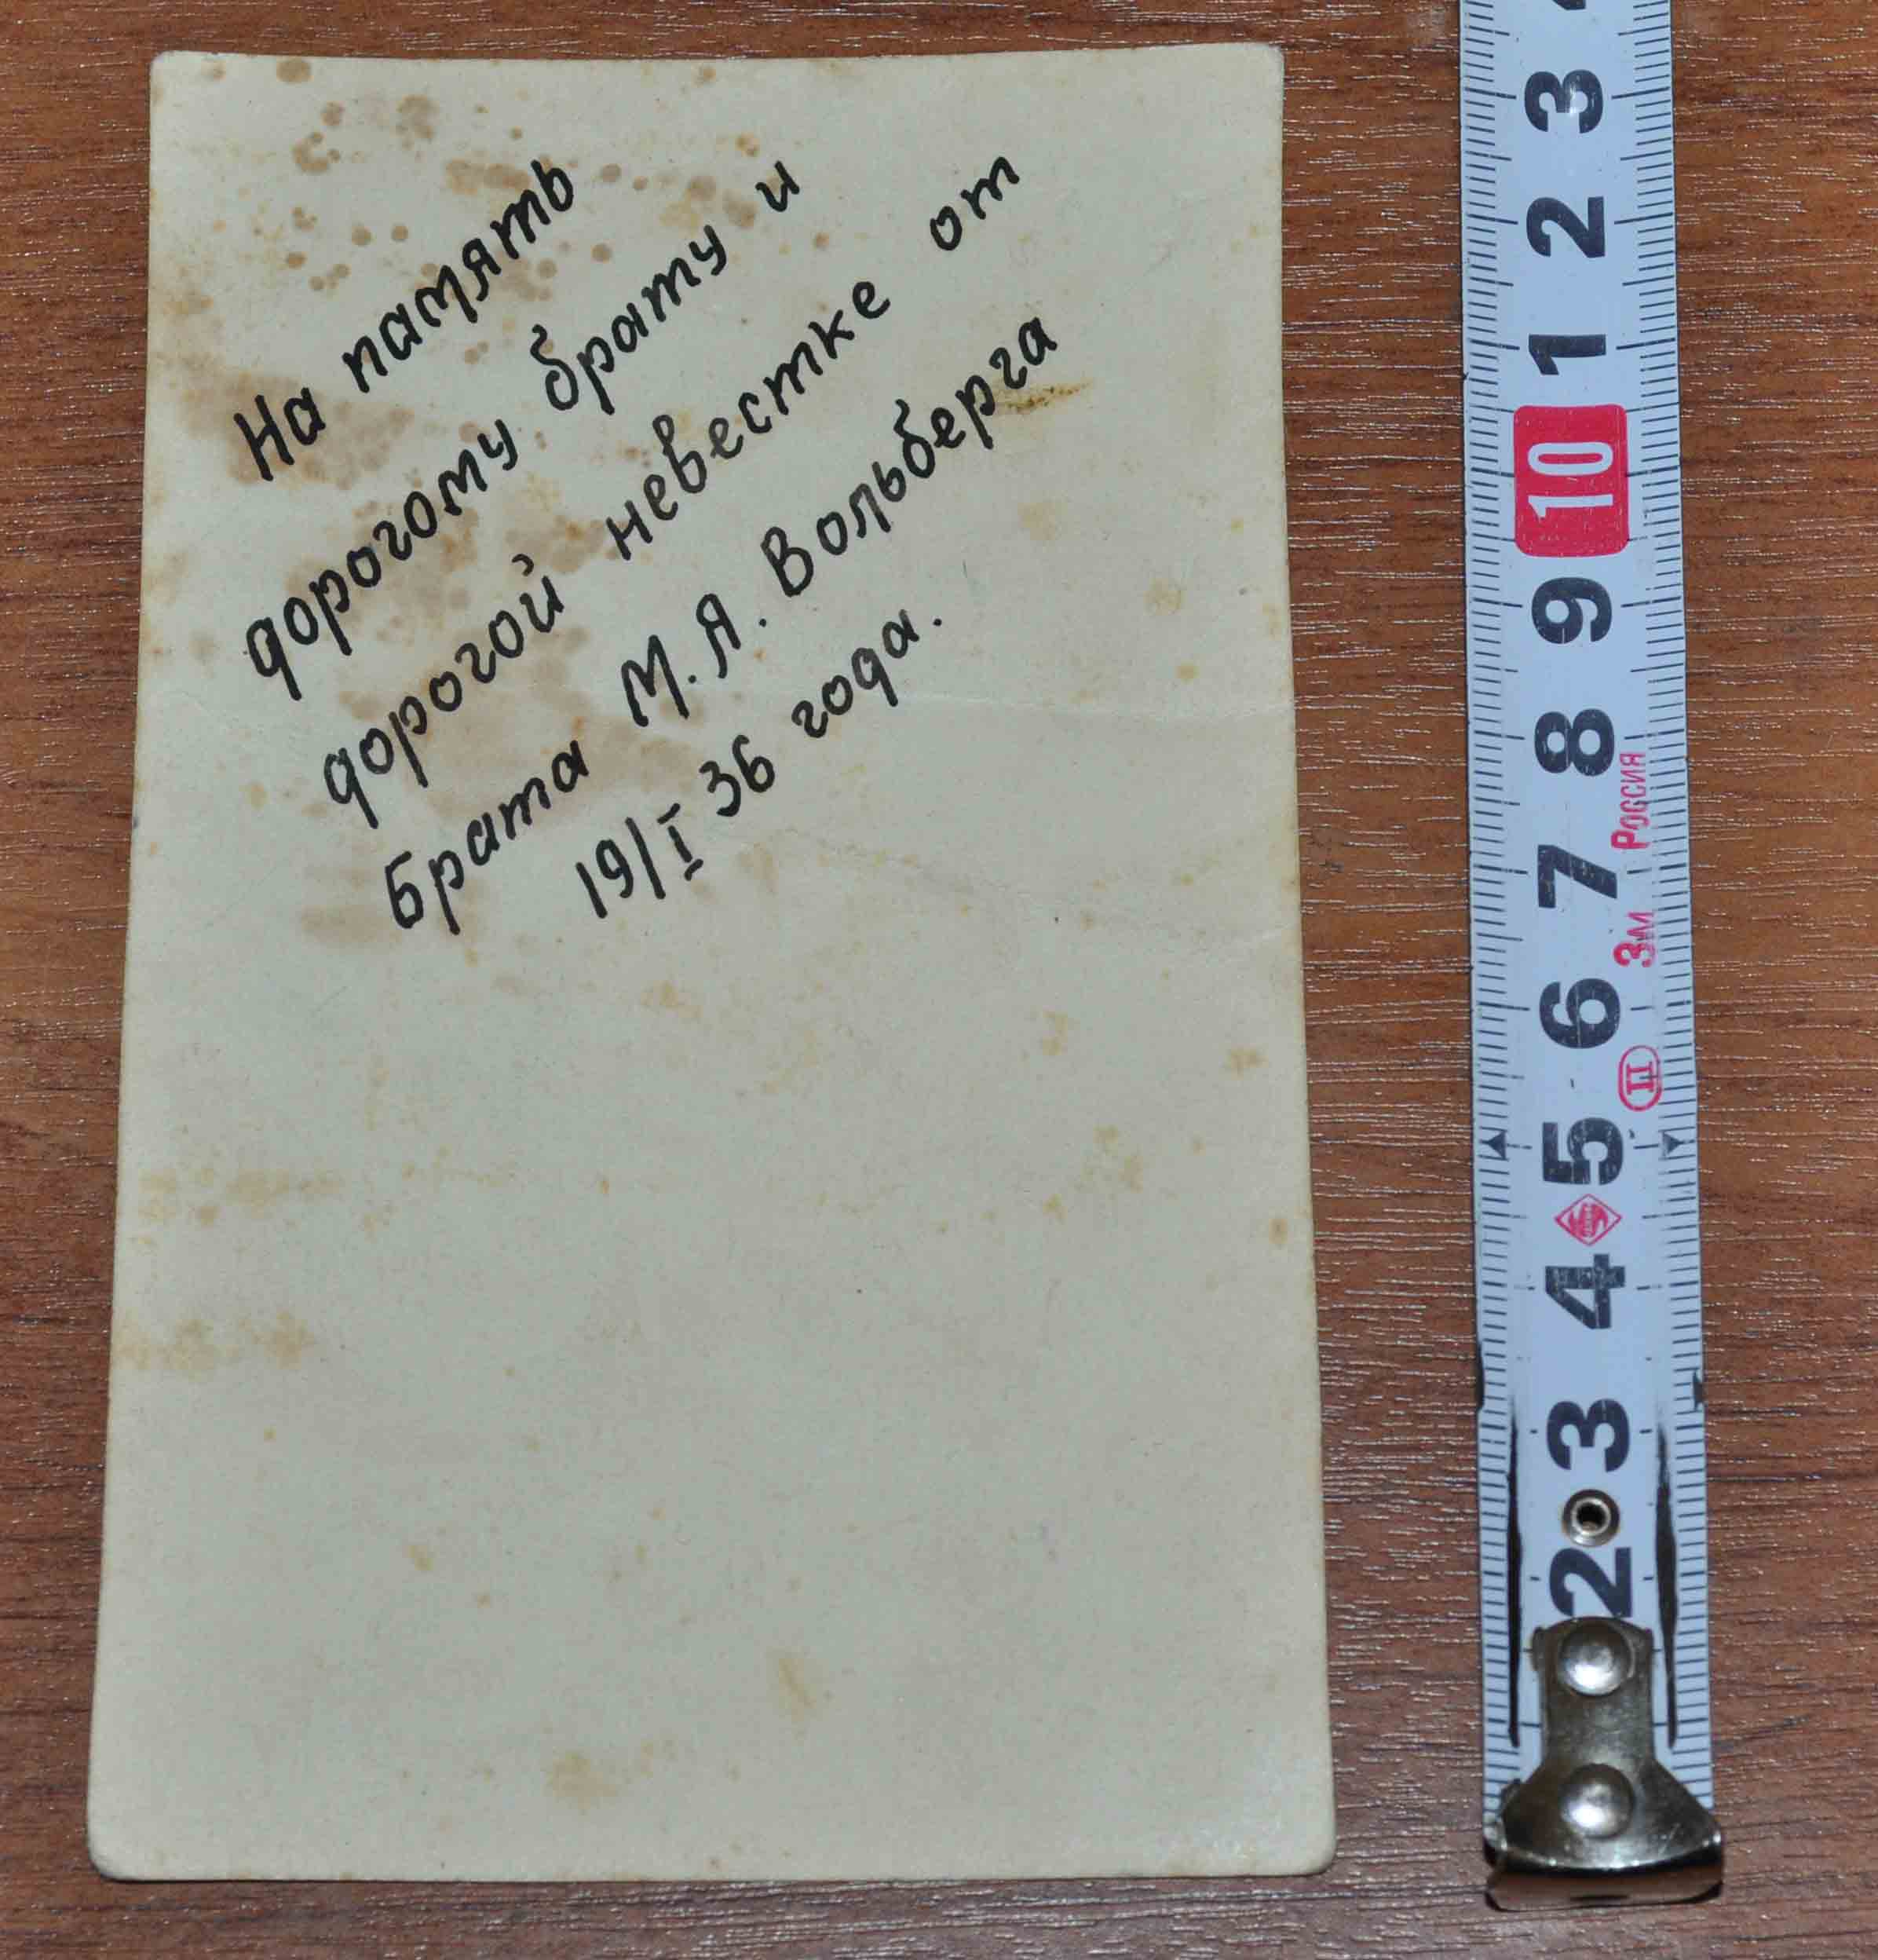 На память
дорогому брату и
дорогой невестке от
Брата М.Я. Вольберга
19/I 36 года.
3
2
1
10
9
8
РОССИЯ
7
3м
6
II
5
4
3
2